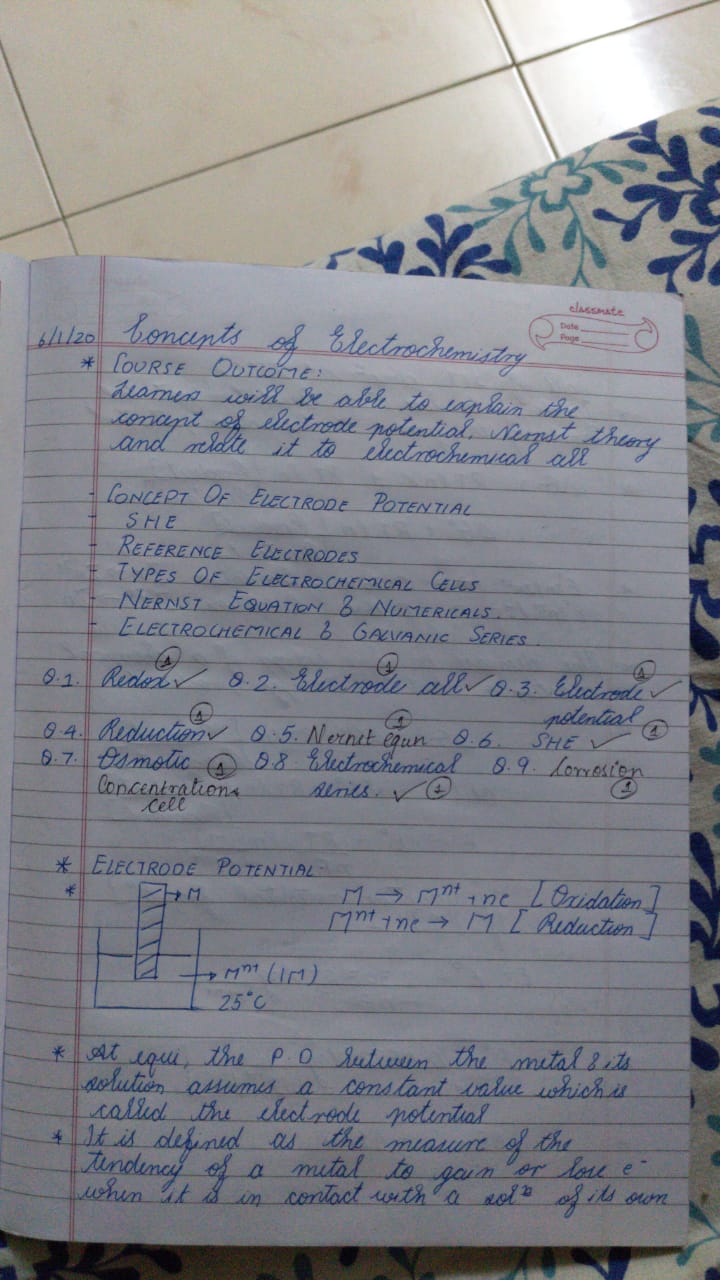 classmate
Date
Page
6/1/20 Concepts of Electrochemistry
* COURSE OUTCOME:
Learners will be able to explain the
concept of electrode potential, Nernst theory
and relate it to electrochemical cell
- CONCEPT OF ELECTRODE POTENTIAL
- SHE
- REFERENCE ELECTRODES
- TYPES OF ELECTROCHEMICAL CELLS
- NERNST EQUATION & NUMERICALS.
- ELECTROCHEMICAL & GALVANIC SERIES.
Q.1. Redox ✓ ① Q.2. Electrode cell ✓ ① Q.3. Electrode ✓ ①
potential
Q.4. Reduction ✓ ① Q.5. Nernst equn ① Q.6. SHE ✓ ①
Q.7. Osmotic ① Q.8 Electrochemical Q.9. Corrosion
Concentration series. ✓ ① ①
Cell
* ELECTRODE POTENTIAL
* → M M → Mⁿ⁺ + ne [Oxidation]
Mⁿ⁺ + ne → M [Reduction]
→ Mⁿ⁺ (1M)
25°C
* At equi, the P.D between the metal & its
solution assumes a constant value which is
called the electrode potential
* It is defined as the measure of the
tendency of a metal to gain or lose e⁻
when it is in contact with a solⁿ of its own